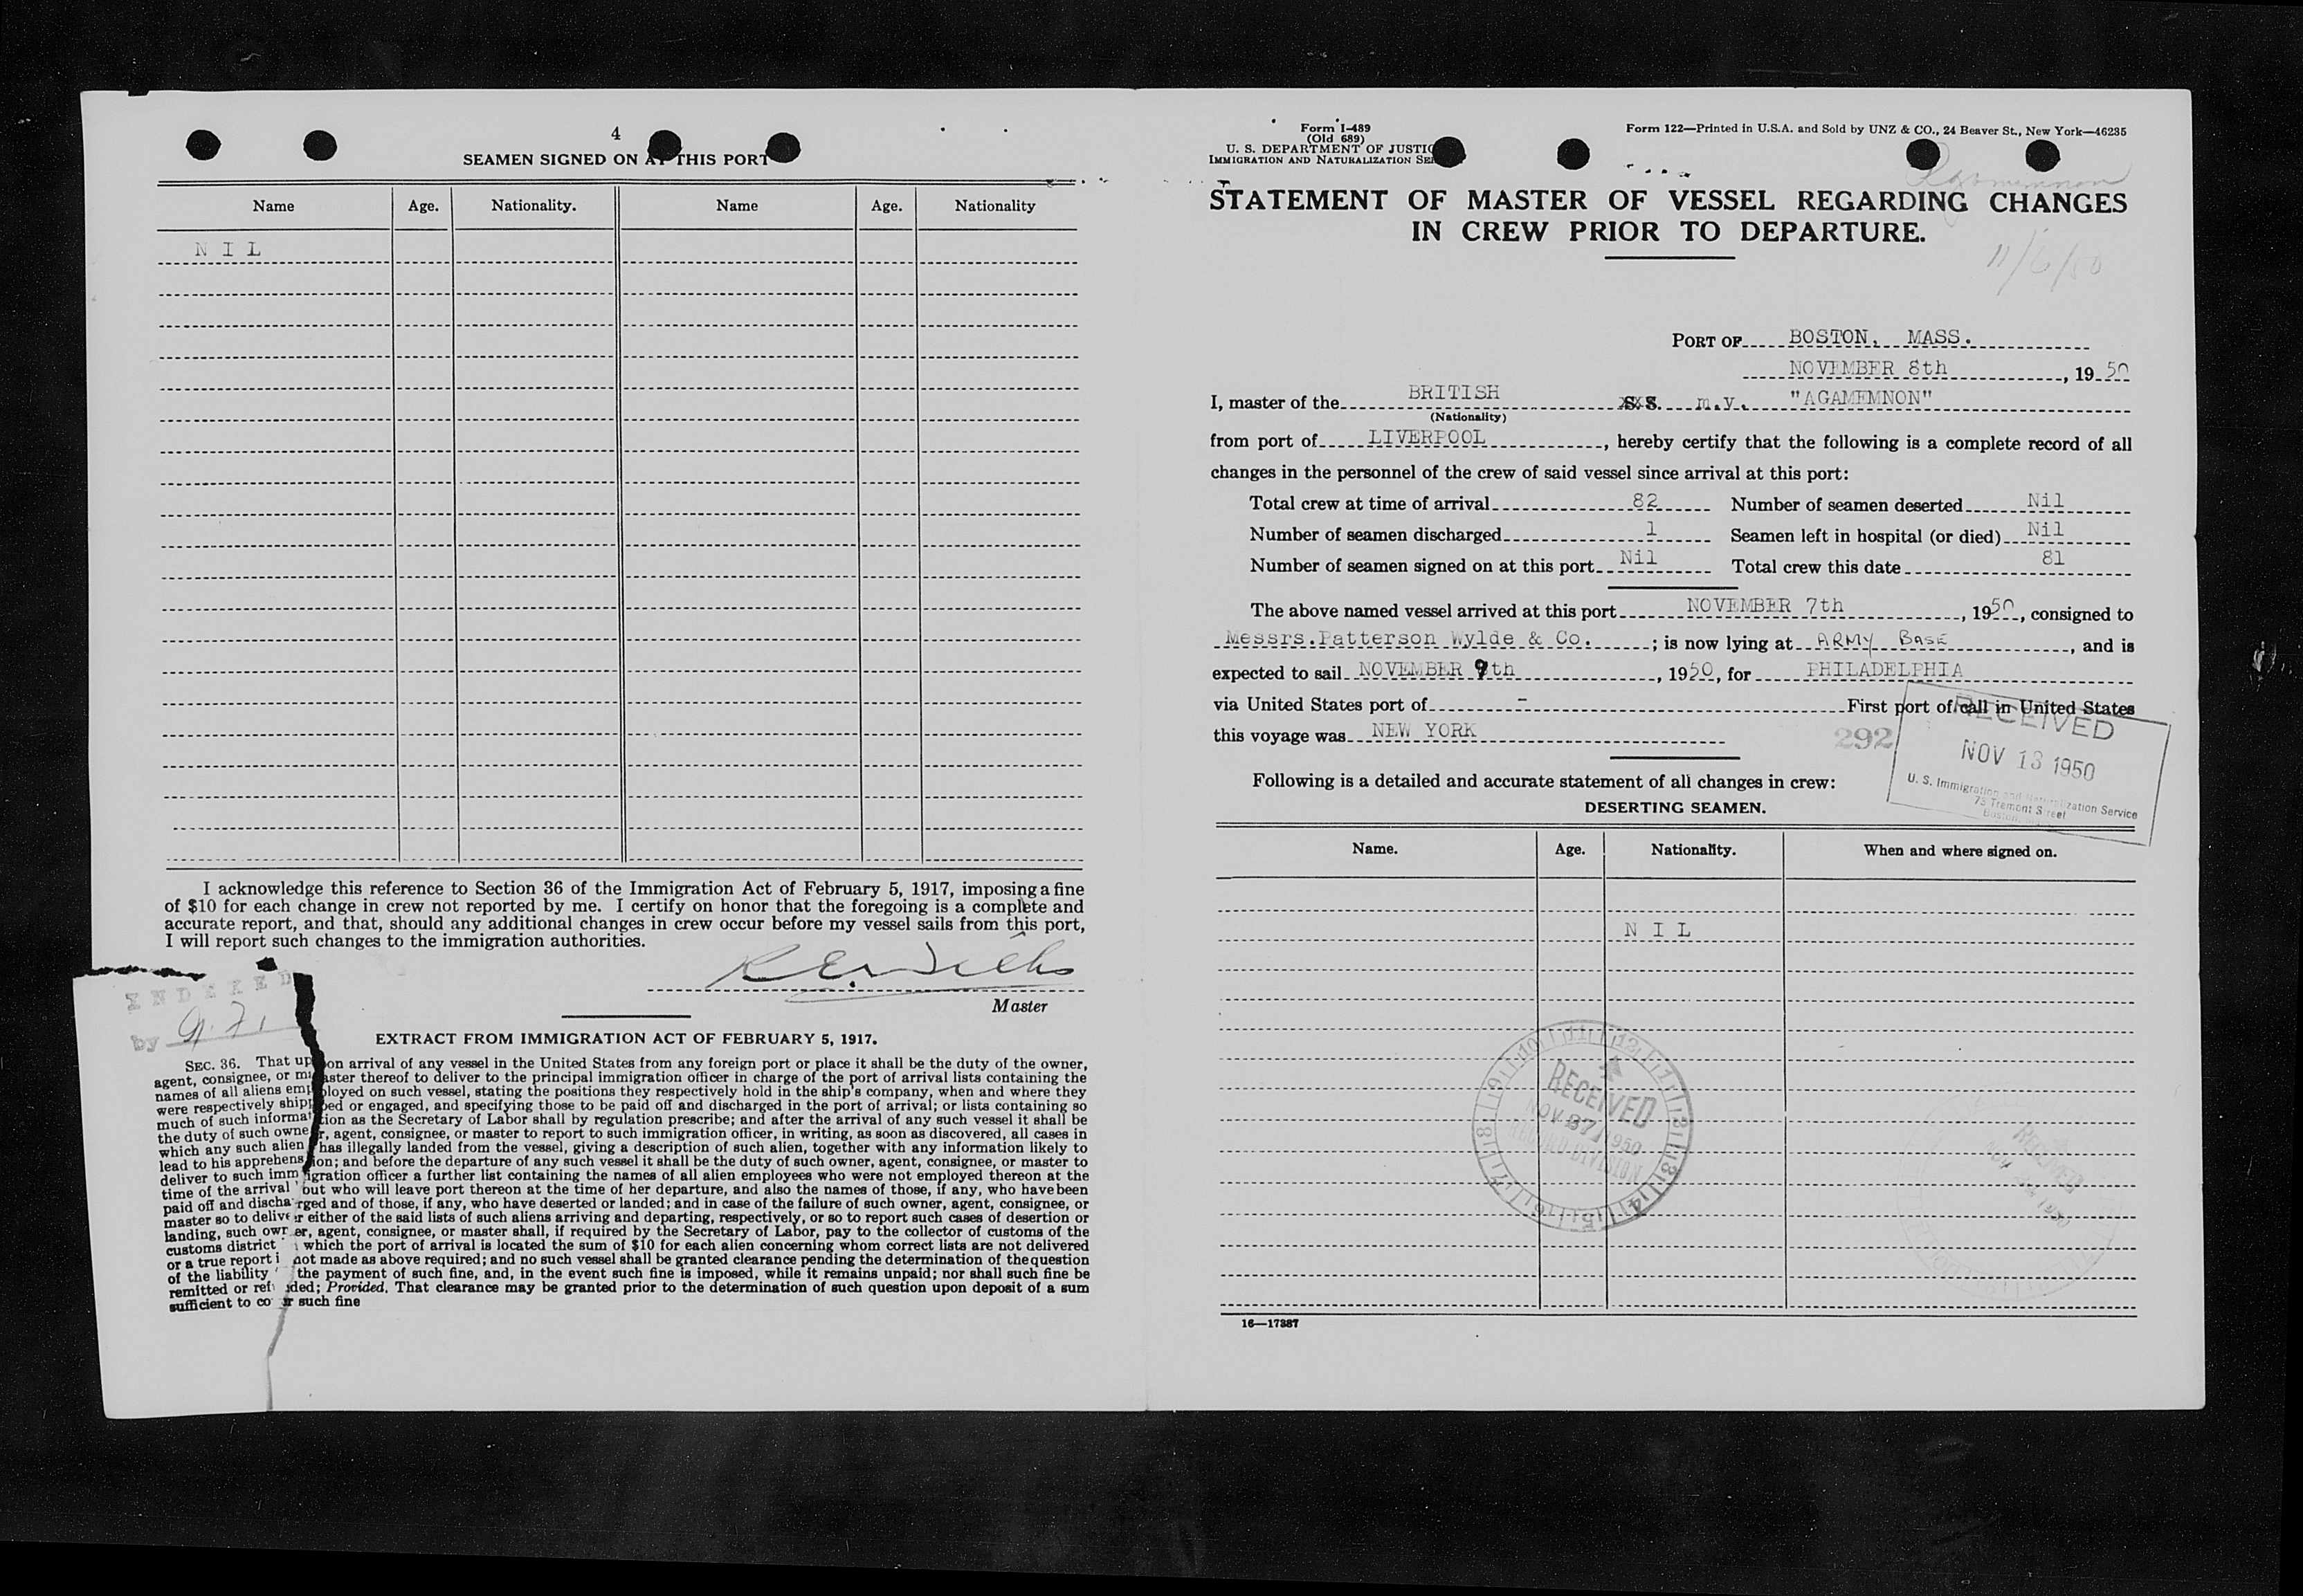 4
SEAMEN SIGNED ON AT THIS PORT
Name Age. Nationality. Name Age. Nationality
N I L
I acknowledge this reference to Section 36 of the Immigration Act of February 5, 1917, imposing a fine
of $10 for each change in crew not reported by me. I certify on honor that the foregoing is a complete and
accurate report, and that, should any additional changes in crew occur before my vessel sails from this port,
I will report such changes to the immigration authorities.
Master
INDEXED
by
EXTRACT FROM IMMIGRATION ACT OF FEBRUARY 5, 1917.
SEC. 36. That upon arrival of any vessel in the United States from any foreign port or place it shall be the duty of the owner,
agent, consignee, or master thereof to deliver to the principal immigration officer in charge of the port of arrival lists containing the
names of all aliens employed on such vessel, stating the positions they respectively hold in the ship's company, when and where they
were respectively shipped or engaged, and specifying those to be paid off and discharged in the port of arrival; or lists containing so
much of such information as the Secretary of Labor shall by regulation prescribe; and after the arrival of any such vessel it shall be
the duty of such owner, agent, consignee, or master to report to such immigration officer, in writing, as soon as discovered, all cases in
which any such alien has illegally landed from the vessel, giving a description of such alien, together with any information likely to
lead to his apprehension; and before the departure of any such vessel it shall be the duty of such owner, agent, consignee, or master to
deliver to such immigration officer a further list containing the names of all alien employees who were not employed thereon at the
time of the arrival but who will leave port thereon at the time of her departure, and also the names of those, if any, who have been
paid off and discharged and of those, if any, who have deserted or landed; and in case of the failure of such owner, agent, consignee, or
master so to deliver either of the said lists of such aliens arriving and departing, respectively, or so to report such cases of desertion or
landing, such owner, agent, consignee, or master shall, if required by the Secretary of Labor, pay to the collector of customs of the
customs district which the port of arrival is located the sum of $10 for each alien concerning whom correct lists are not delivered
or a true report i not made as above required; and no such vessel shall be granted clearance pending the determination of the question
of the liability the payment of such fine, and, in the event such fine is imposed, while it remains unpaid; nor shall such fine be
remitted or refunded; Provided, That clearance may be granted prior to the determination of such question upon deposit of a sum
sufficient to cover such fine
Form I-489
(Old 689)
U. S. DEPARTMENT OF JUSTIC
IMMIGRATION AND NATURALIZATION SE
Form 122—Printed in U.S.A. and Sold by UNZ & CO., 24 Beaver St., New York—46235
Agamemnon
STATEMENT OF MASTER OF VESSEL REGARDING CHANGES
IN CREW PRIOR TO DEPARTURE.
11/6/50
PORT OF BOSTON, MASS.
NOVEMBER 8th, 1950
I, master of the BRITISH S.S. m.v. "AGAMEMNON"
(Nationality)
from port of LIVERPOOL, hereby certify that the following is a complete record of all
changes in the personnel of the crew of said vessel since arrival at this port:
Total crew at time of arrival 82 Number of seamen deserted Nil
Number of seamen discharged 1 Seamen left in hospital (or died) Nil
Number of seamen signed on at this port Nil Total crew this date 81
The above named vessel arrived at this port NOVEMBER 7th, 1950, consigned to
Messrs.Patterson Wylde & Co.; is now lying at ARMY BASE, and is
expected to sail NOVEMBER 9th, 1950, for PHILADELPHIA
via United States port of - First port of call in United States
this voyage was NEW YORK
292
RECEIVED
NOV 13 1950
U. S. Immigration and Naturalization Service
73 Tremont Street
Boston,
Following is a detailed and accurate statement of all changes in crew:
DESERTING SEAMEN.
Name. Age. Nationality. When and where signed on.
N I L
RECEIVED
NOV 1950
RECORD DIVISION
RECEIVED
16—17387